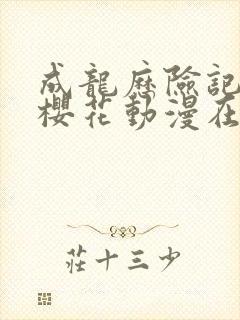 成龍歷險記
櫻花動漫在
莊十三少